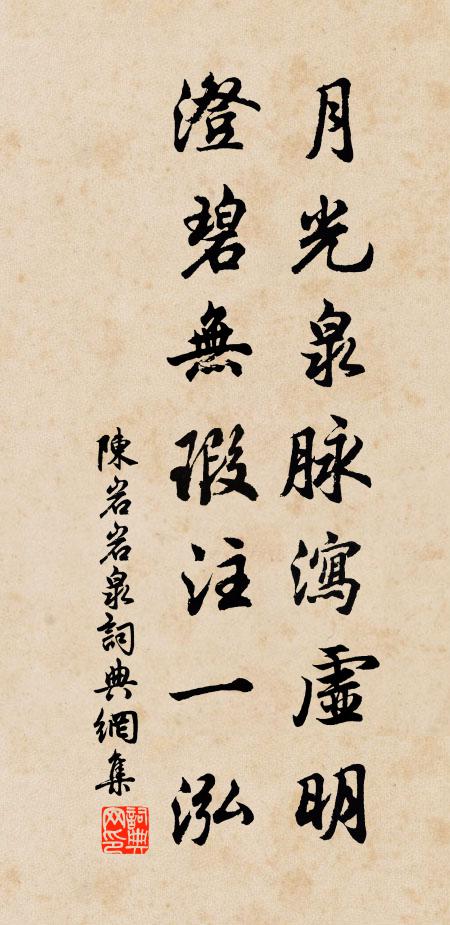 月光泉脉瀉虛明
澄碧無瑕注一泓
陳岩岩泉詞典網集
詞典網印